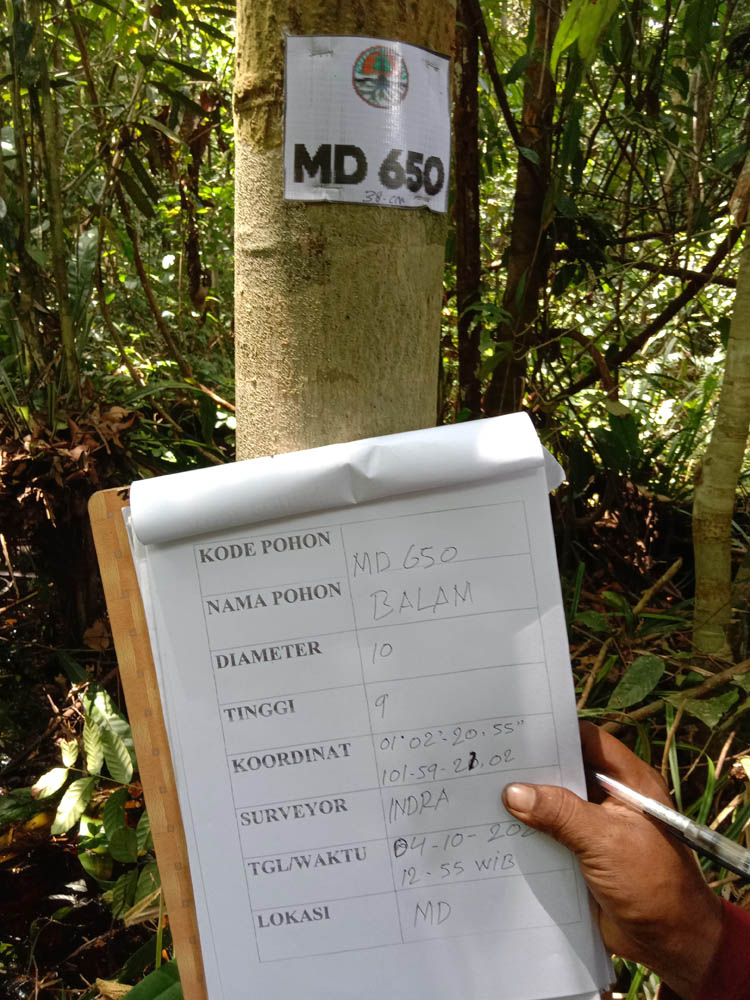 MD 650
38 cm
KODE POHON MD 650
NAMA POHON BALAM
DIAMETER 10
TINGGI 9
KOORDINAT 01°02'-20.55"
101-59-21.02
SURVEYOR INDRA
TGL/WAKTU 04-10-202
12-55 WIB
LOKASI MD